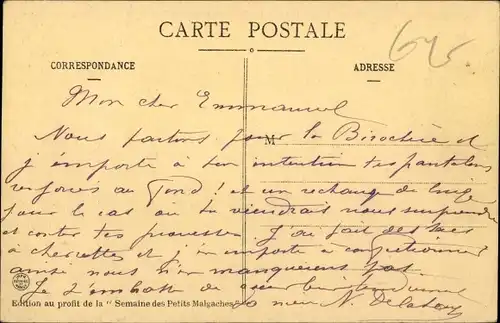 CARTE POSTALE
645
CORRESPONDANCE
ADRESSE
Mon cher Emmanuel
Nous partons pour la Birochère et
M
j'emporte à ton intention tes pantalons
renforcés au fond! et un rechange de linge
pour le cas où tu viendrais nous surprendre
et conter tes prouesses. J'ai fait des sacs
à chercettes et j'en emporte à confectionner
ainsi nous n'en manquerons pas.
Je t'embrasse de cœur bien tendrement
Edition au profit de la "Semaine des Petits Malgaches"
N.